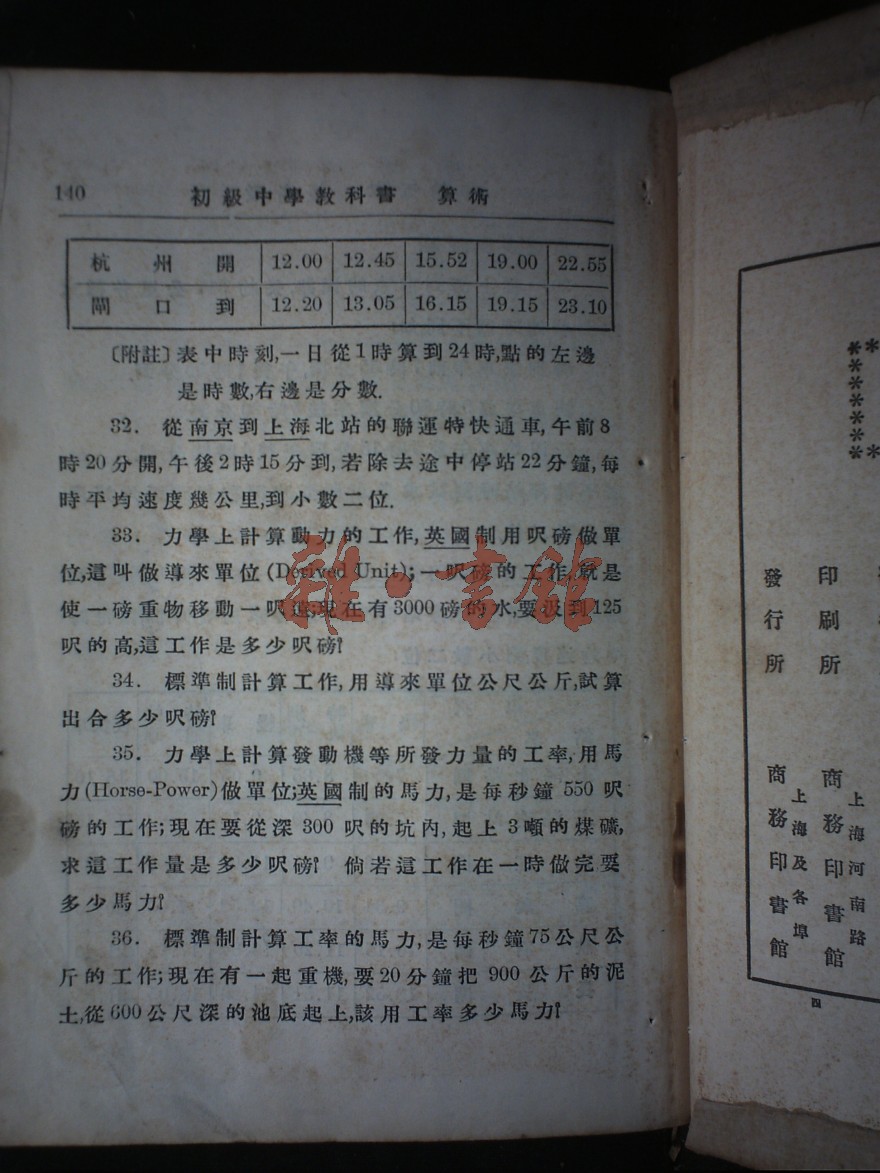 140 初級中學教科書 算術
杭州開 12.00 12.45 15.52 19.00 22.55
閘口到 12.20 13.05 16.15 19.15 23.10
〔附註〕表中時刻,一日從1時算到24時,點的左邊
是時數,右邊是分數.
32. 從南京到上海北站的聯運特快通車,午前8
時20分開,午後2時15分到,若除去途中停站22分鐘,每
時平均速度幾公里,到小數二位.
33. 力學上計算動力的工作,英國制用呎磅做單
位,這叫做導來單位(Derived Unit);一呎磅的工作,就是
使一磅重物移動一呎遠;現在有3000磅的水,要汲到125
呎的高,這工作是多少呎磅?
34. 標準制計算工作,用導來單位公尺公斤,試算
出合多少呎磅?
35. 力學上計算發動機等所發力量的工率,用馬
力(Horse-Power)做單位;英國制的馬力,是每秒鐘550呎
磅的工作;現在要從深300呎的坑內,起上3噸的煤礦,
求這工作量是多少呎磅? 倘若這工作在一時做完要
多少馬力?
36. 標準制計算工率的馬力,是每秒鐘75公尺公
斤的工作;現在有一起重機,要20分鐘把900公斤的泥
土,從600公尺深的池底起上,該用工率多少馬力?
雜·書館
印刷所
發行所
上海河南路
商務印書館
上海及各埠
商務印書館
四